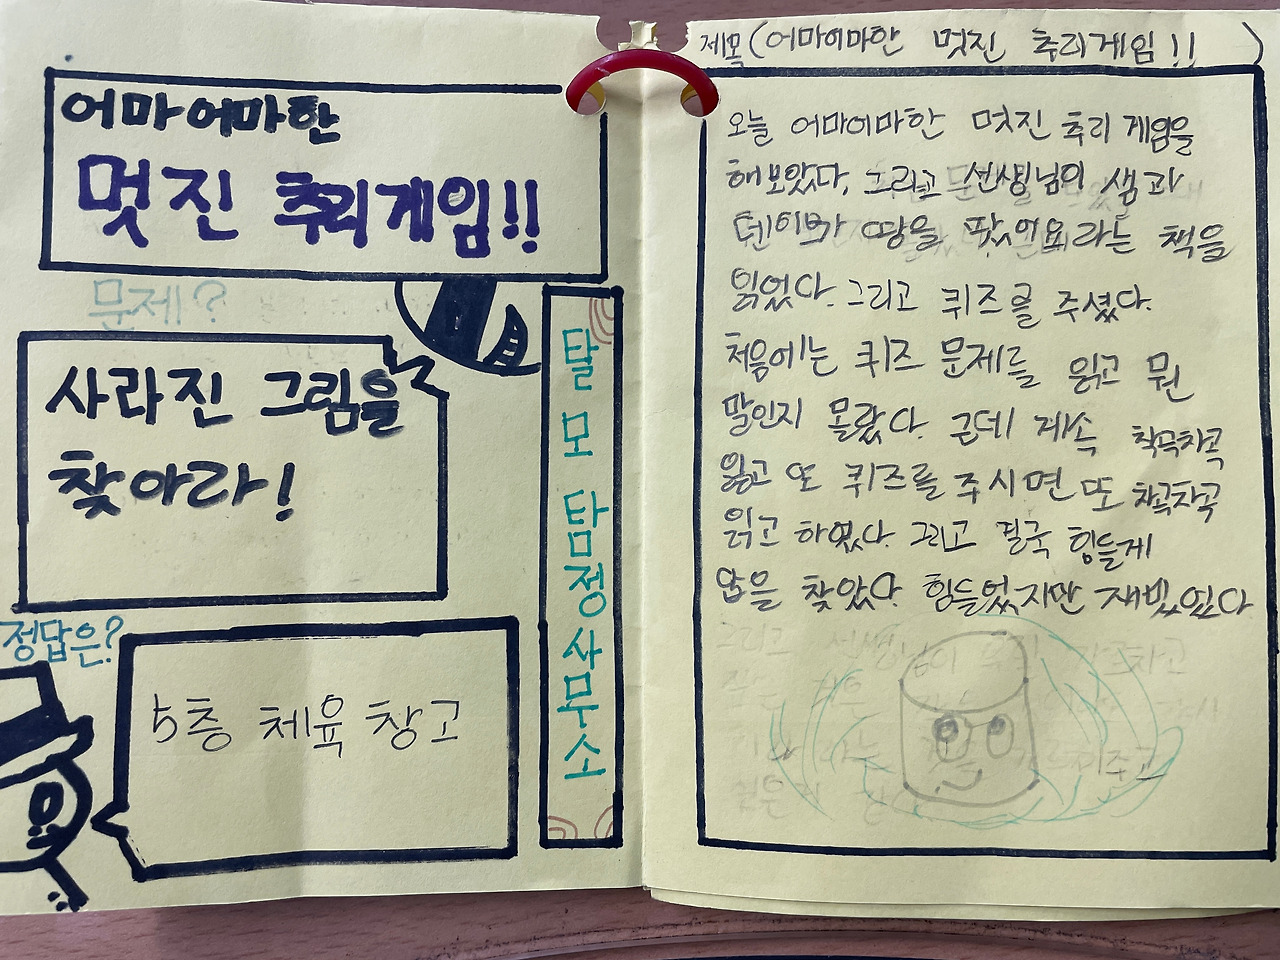 어마어마한
멋진 추리게임!!
문제?
사라진 그림을
찾아라!
정답은?
5층 체육 창고
탈모 탐정사무소
제목(어마어마한 멋진 추리게임!! )
오늘 어마어마한 멋진 추리 게임을
해보았다. 그리고 선생님이 샘과
데이브가 땅을 팠어요라는 책을
읽었다. 그리고 퀴즈를 주셨다.
처음에는 퀴즈 문제를 읽고 뭔
말인지 몰랐다. 근데 계속 차곡차곡
읽고 또 퀴즈를 주시면 또 차곡차곡
읽고 하였다. 그리고 결국 힘들게
답을 찾았다. 힘들었지만 재밌었다